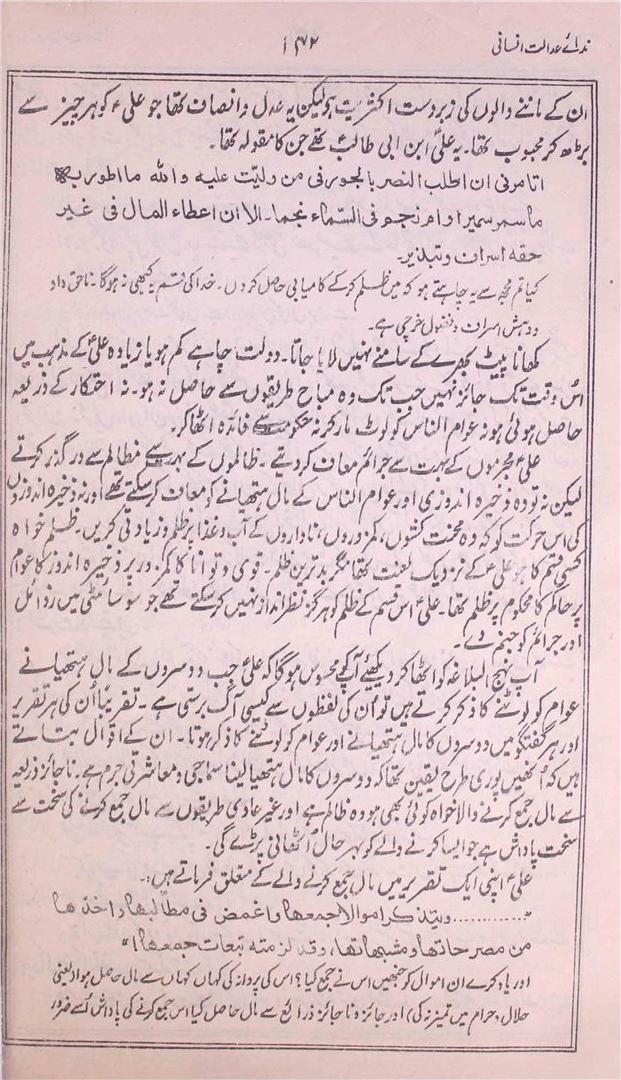 ندائے عدالت انسانی
۱۴۲
ان کے ماننے والوں کی زبردست اکثریت ہو لیکن یہ عدل و انصاف تھا جو علیؑ کو ہر چیز سے
بڑھ کر محبوب تھا۔ یہ علیؑ ابن ابی طالبؑ تھے جن کا مقولہ تھا۔
اتامرنی ان اطلب النصر بالجور فی من ولیت علیہ و اللہ ما اطور بہ
ما سمر سمیر او ام نجم فی السماء نجما۔ الا ان اعطاء المال فی غیر
حقہ اسراف و تبذیر۔
کیا تم مجھ سے یہ چاہتے ہو کہ میں ظلم کرکے کامیابی حاصل کروں۔ خدا کی قسم یہ کبھی نہ ہوگا۔ ناحق داد
و دہش اسراف و فضول خرچی ہے۔
کھانا پیٹ بھرے کے سامنے نہیں لایا جاتا۔ دولت چاہے کم ہو یا زیادہ علیؑ کے مذہب میں
اس وقت تک جائز نہیں جب تک وہ مباح طریقوں سے حاصل نہ ہو۔ نہ احتکار کے ذریعہ
حاصل ہوئی ہو نہ عوام الناس کو لوٹ مار کر نہ حکومت سے فائدہ اٹھا کر۔
علیؑ مجرموں کے بہت سے جرائم معاف کر دیتے۔ ظالموں کے بہت سے مظالم سے درگذر کرتے
لیکن نہ تو وہ ذخیرہ اندوزی اور عوام الناس کے مال ہتھیانے کو معاف کر سکتے تھے اور نہ ذخیرہ اندوزوں
کی اس حرکت کو کہ وہ محنت کشوں، کمزوروں، ناداروں کے آب و غذا پر ظلم و زیادتی کریں۔ ظلم خواہ
کسی قسم کا ہو علیؑ کے نزدیک لعنت تھا مگر بدترین ظلم۔ قوی و توانا کا کمزور پر ذخیرہ اندوز کا عوام
پر حاکم کا محکوم پر ظلم تھا۔ علیؑ اس قسم کے ظلم کو ہرگز نظر انداز نہیں کر سکتے تھے جو سوسائٹی میں رذائل
اور جرائم کو جنم دے۔
آپ نہج البلاغہ کو اٹھا کر دیکھیے آپ کو محسوس ہوگا کہ علیؑ جب دوسروں کے مال ہتھیانے
عوام کو لوٹنے کا ذکر کرتے ہیں تو ان کی لفظوں سے کیسی آگ برستی ہے۔ تقریباً ان کی ہر تقریر
اور ہر گفتگو میں دوسروں کا مال ہتھیانے اور عوام کو لوٹنے کا ذکر ہوتا۔ ان کے اقوال بتاتے
ہیں کہ انھیں پوری طرح یقین تھا کہ دوسروں کا مال ہتھیا لینا سماجی و معاشرتی جرم ہے۔ ناجائز ذریعہ
سے مال جمع کرنے والا خواہ کوئی بھی ہو وہ ظالم ہے اور غیر عادی طریقوں سے مال جمع کرنے کی سخت سے
سخت پاداش ہے جو ایسا کرنے والے کو بہر حال اٹھانی پڑے گی۔
علیؑ اپنی ایک تقریر میں مال جمع کرنے والے کے متعلق فرماتے ہیں:۔
"............ ویتذکر اموالا جمعھا و اغمض فی مطالبھا و اخذھا
من مصرحاتھا و مشبھاتھا، و قد لزمتہ تبعات جمعھا!"
اور یاد کرے ان اموال کو جنھیں اس نے جمع کیا؟ اس کی پروا نہ کی کہاں کہاں سے مال حاصل ہوا (یعنی
حلال و حرام میں تمیز نہ کی) اور جائز و ناجائز ذرائع سے مال حاصل کیا اس جمع کرنے کی پاداش اسے ضرور